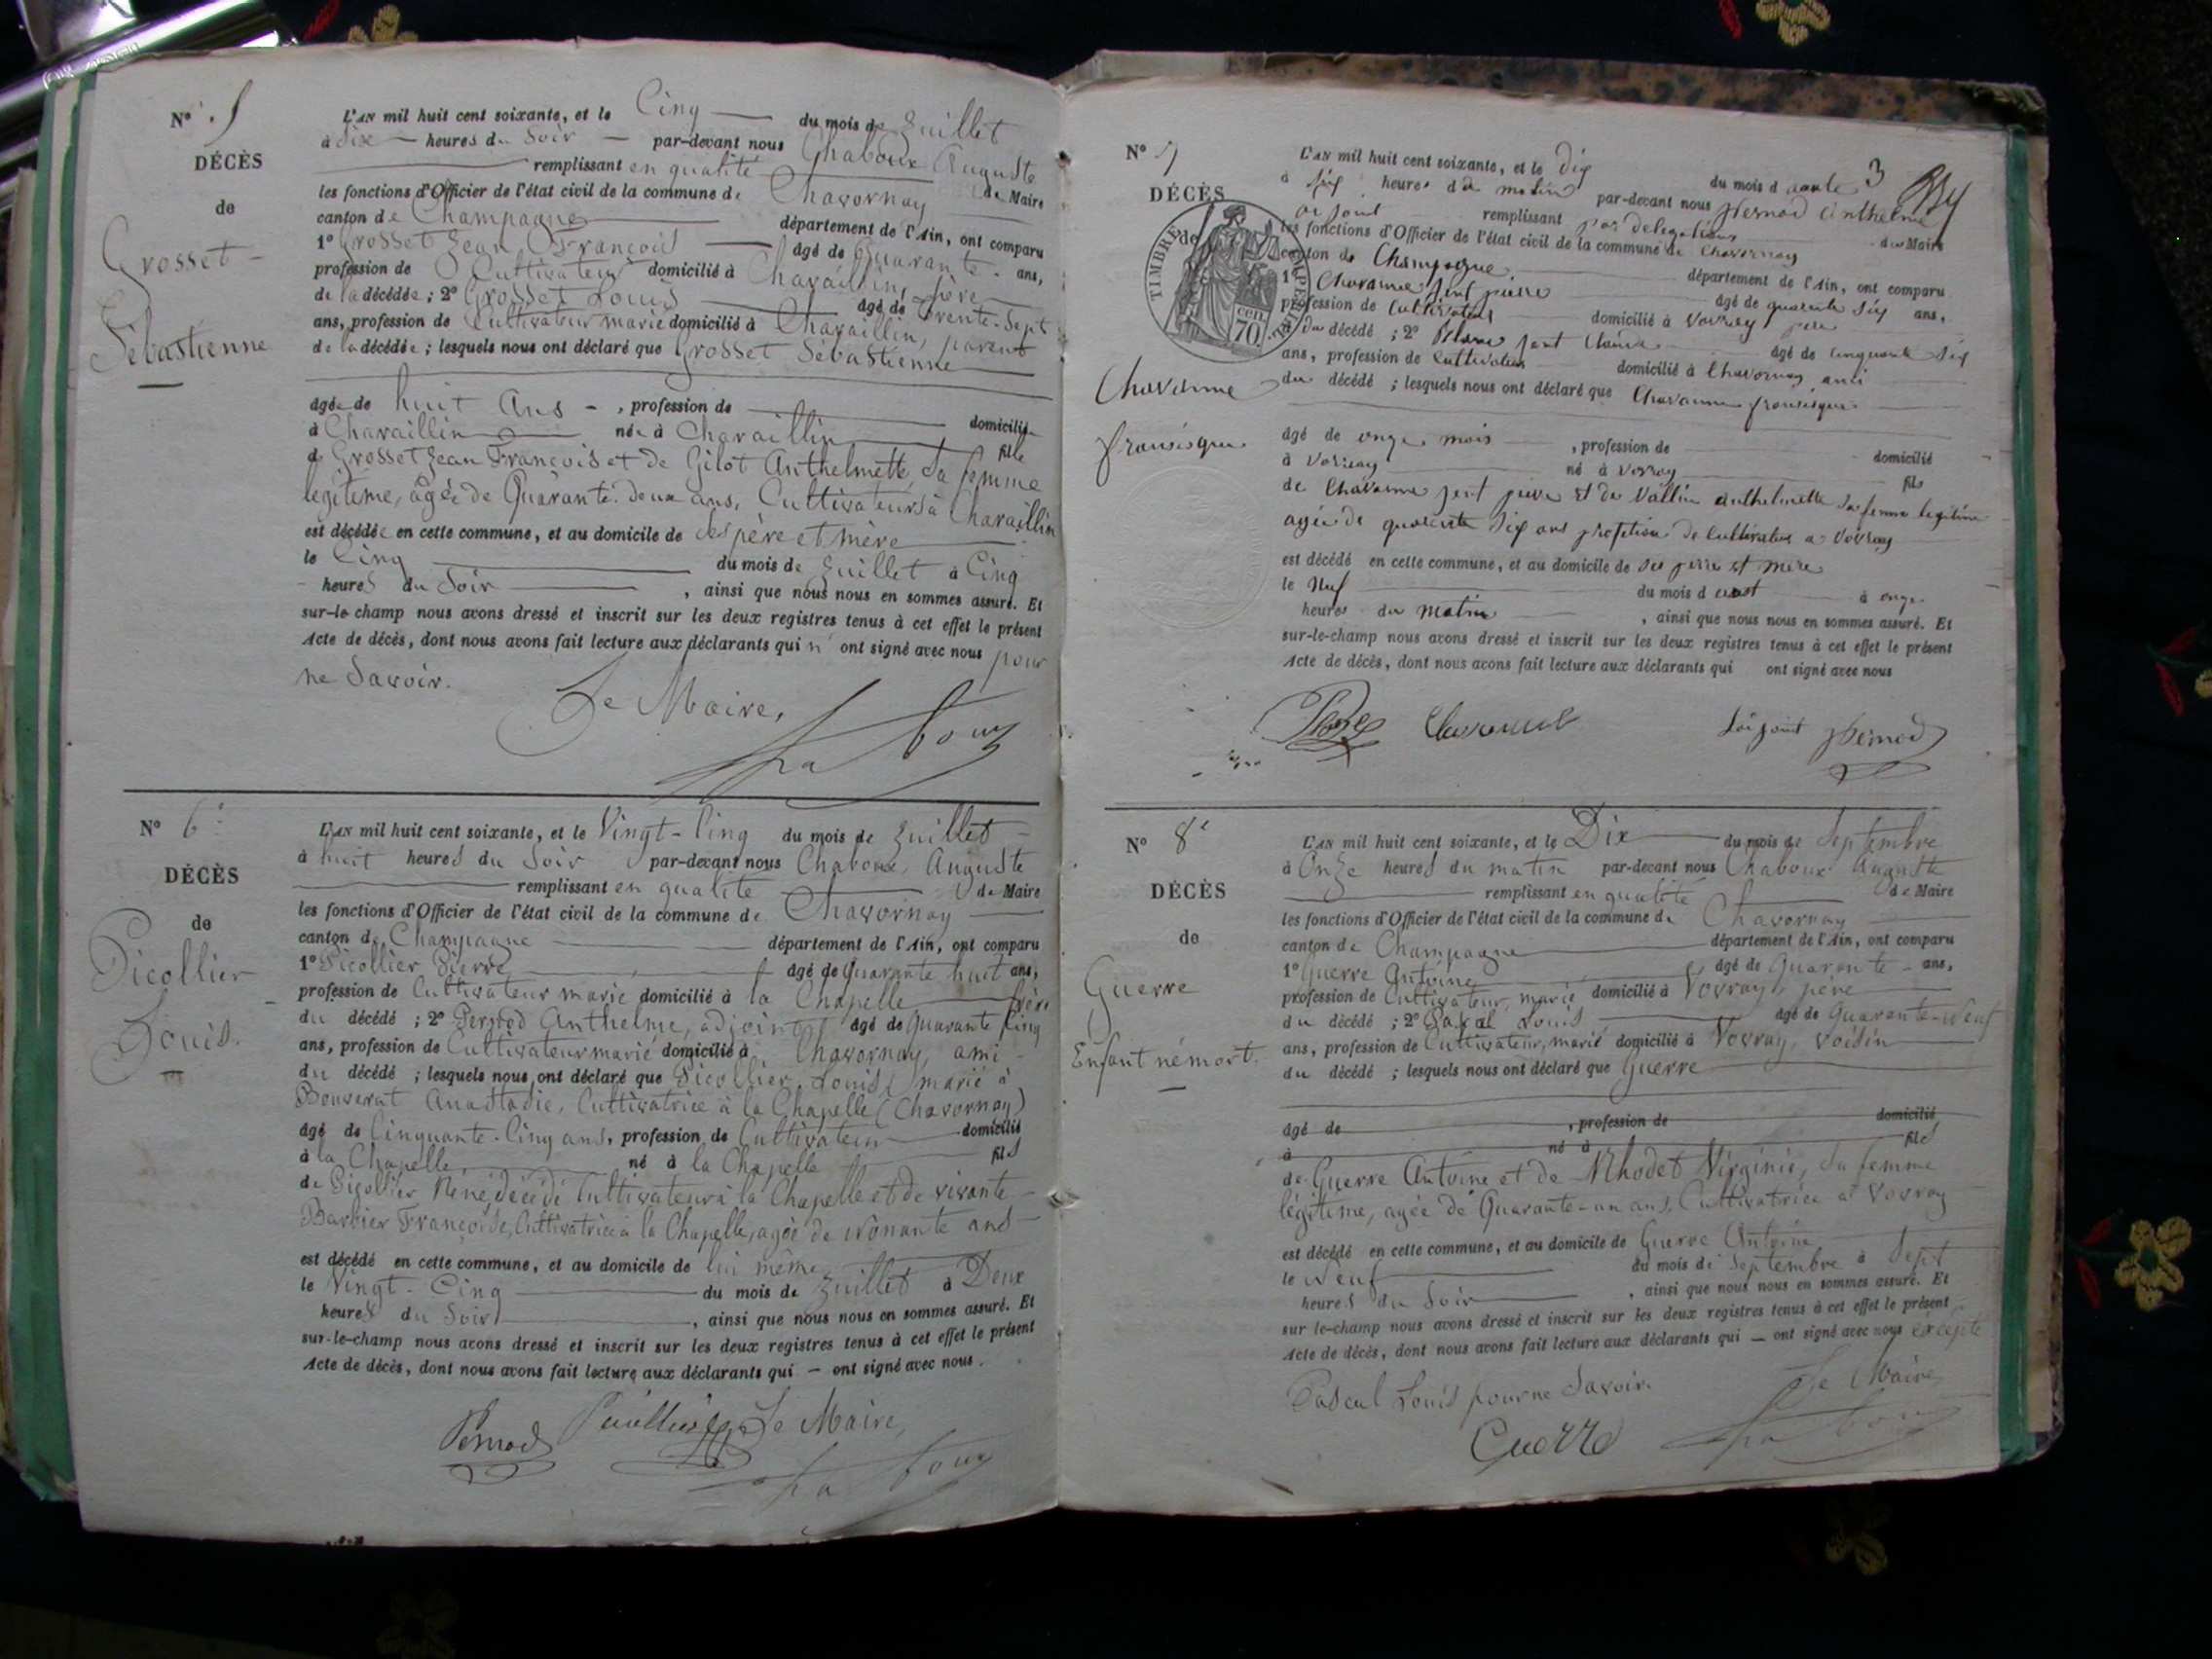 N° 5
DÉCÈS
de
Grosset
Sébastienne
L'AN mil huit cent soixante, et le Cinq du mois de Juillet
à Dix heures du Soir par-devant nous Chaboux Auguste
remplissant en qualité de Maire
les fonctions d'Officier de l'état civil de la commune de Chavornay
canton de Champagne département de l'Ain, ont comparu
1° Grosset Jean François âgé de Quarante ans,
profession de Cultivateur domicilié à Charaillin, père
de la décédée; 2° Grosset Louis âgé de Trente-Sept
ans, profession de Cultivateur marié domicilié à Charaillin, parent
de la décédée; lesquels nous ont déclaré que Grosset Sébastienne
âgée de huit Ans, profession de domiciliée
à Charaillin née à Charaillin fille
de Grosset Jean François et de Gilot Anthelmette, Sa femme
légitime, âgée de Quarante-deux ans, Cultivateurs à Charaillin
est décédée en cette commune, et au domicile de Ses père et mère
le Cinq du mois de Juillet à Cinq
heures du Soir, ainsi que nous nous en sommes assuré. Et
sur-le-champ nous avons dressé et inscrit sur les deux registres tenus à cet effet le présent
Acte de décès, dont nous avons fait lecture aux déclarants qui n'ont signé avec nous pour
ne Savoir.
Le Maire,
Chaboux
N° 6
DÉCÈS
de
Picollier
Louis.
L'AN mil huit cent soixante, et le Vingt-Cinq du mois de Juillet
à huit heures du Soir par-devant nous Chaboux Auguste
remplissant en qualité de Maire
les fonctions d'Officier de l'état civil de la commune de Chavornay
canton de Champagne département de l'Ain, ont comparu
1° Picollier Pierre âgé de Quarante huit ans,
profession de Cultivateur marié domicilié à la Chapelle frère
du décédé; 2° Pernod Anthelme, adjoint âgé de Quarante Cinq
ans, profession de Cultivateur marié domicilié à Chavornay, ami
du décédé; lesquels nous ont déclaré que Picollier Louis, marié à
Bouverat Anastasie, Cultivatrice à la Chapelle (Chavornay)
âgé de Cinquante-Cinq ans, profession de Cultivateur domicilié
à la Chapelle, né à la Chapelle fils
de Picollier René décédé Cultivateur à la Chapelle et de vivante
Barbier Françoise, Cultivatrice à la Chapelle, agée de Nonante ans
est décédé en cette commune, et au domicile de lui même
le Vingt-Cinq du mois de Juillet à Deux
heures du Soir, ainsi que nous nous en sommes assuré. Et
sur-le-champ nous avons dressé et inscrit sur les deux registres tenus à cet effet le présent
Acte de décès, dont nous avons fait lecture aux déclarants qui — ont signé avec nous.
Pernod Picollier Le Maire,
Chaboux
3
N° 7
DÉCÈS
de
TIMBRE IMPÉRIAL
70 cen.
Chavanne
fransisque
L'AN mil huit cent soixante, et le dix du mois d aoute
à six heures du matin par-devant nous Pernod Anthelme
adjoint remplissant par delegation du Maire
les fonctions d'Officier de l'état civil de la commune de Chavornay
canton de Champagne département de l'Ain, ont comparu
1° Chavanne jent pierre âgé de quarente six ans,
profession de Cultivateur domicilié à Vovray pere
du décédé; 2° jent Claude âgé de cinquante six
ans, profession de Cultivateur domicilié à Chavornay ami
du décédé; lesquels nous ont déclaré que Chavanne fransisque
âgé de onze mois, profession de domicilié
à Vovray né à Vovray fils
de Chavanne jent pierre et de Vallin anthelmette sa femme legitime
agée de quarente six ans profession de Cultivateur a Vovray
est décédé en cette commune, et au domicile de ses perre et mere
le Neuf du mois d aoust à onze
heures du matin, ainsi que nous nous en sommes assuré. Et
sur-le-champ nous avons dressé et inscrit sur les deux registres tenus à cet effet le présent
Acte de décès, dont nous avons fait lecture aux déclarants qui ont signé avec nous
Chavanne Ladjoint Pernod
N° 8e
DÉCÈS
de
Guerre
Enfant né mort.
L'AN mil huit cent soixante, et le Dix du mois de Septembre
à Onze heures du matin par-devant nous Chaboux Auguste
remplissant en qualité de Maire
les fonctions d'Officier de l'état civil de la commune de Chavornay
canton de Champagne département de l'Ain, ont comparu
1° Guerre Antoine âgé de Quarante ans,
profession de Cultivateur, marié domicilié à Vovray, père
du décédé; 2° Pascal Louis âgé de Quarante-Neuf
ans, profession de Cultivateur, marié domicilié à Vovray, voisin
du décédé; lesquels nous ont déclaré que Guerre
âgé de, profession de domicilié
à né à fils
de Guerre Antoine et de Rhodet Virginie, Sa femme
légitime, agée de Quarante-un ans, Cultivatrice à Vovray
est décédé en cette commune, et au domicile de Guerre Antoine
le Neuf du mois de Septembre à Sept
heures du Soir, ainsi que nous nous en sommes assuré. Et
sur le-champ nous avons dressé et inscrit sur les deux registres tenus à cet effet le présent
Acte de décès, dont nous avons fait lecture aux déclarants qui — ont signé avec nous excepté
Pascal Louis pour ne Savoir.
Le Maire,
Guerre Chaboux